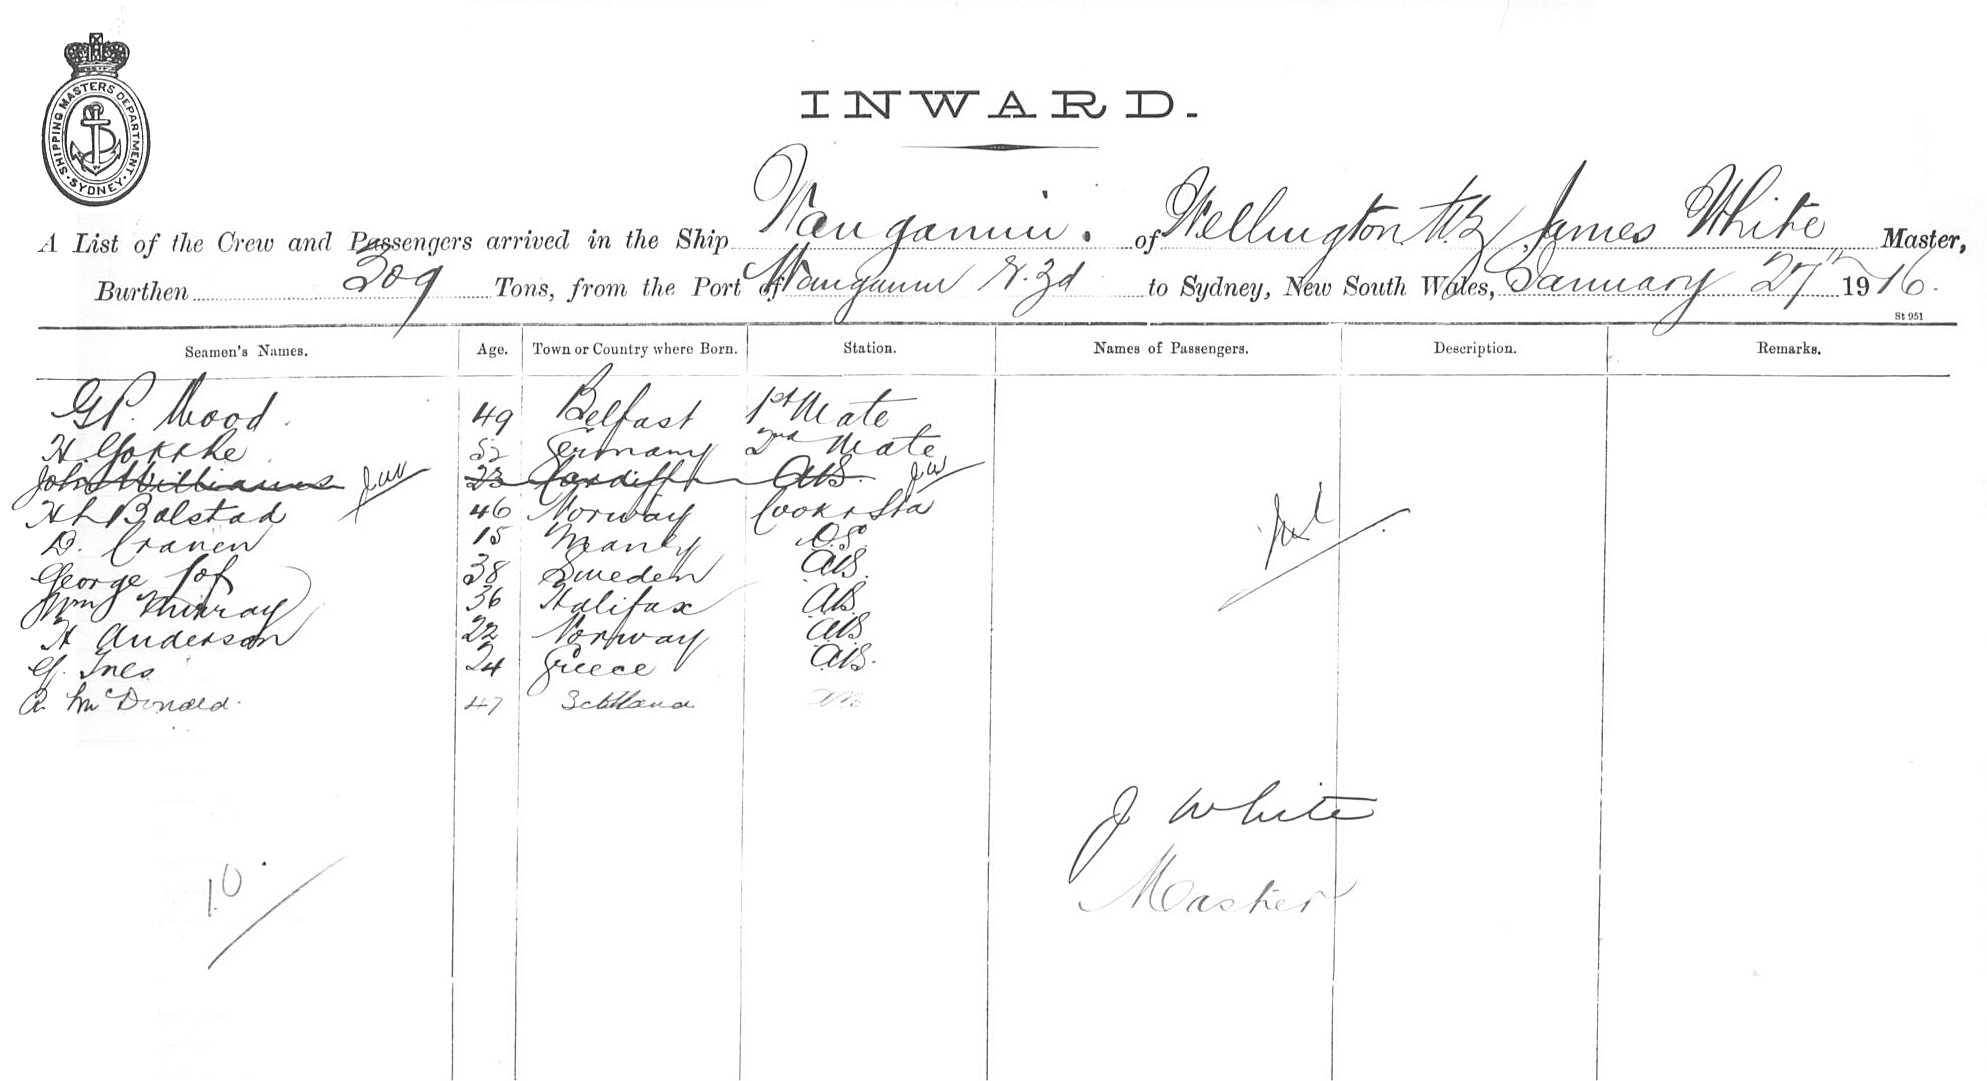 SHIPPING MASTERS DEPARTMENT. SYDNEY
INWARD.
A List of the Crew and Passengers arrived in the Ship Wanganui. of Wellington N.Z James White Master,
Burthen 309 Tons, from the Port of Wanganui N. Zd to Sydney, New South Wales, January 27th 1916.
St 951
Seamen's Names. Age. Town or Country where Born. Station. Names of Passengers. Description. Remarks.
G P. Wood 49 Belfast 1st Mate
H. 52 Germany 2nd Mate
John Williams JW 23 Cardiff AB JW
H L Balstad 46 Norway Cook & Std
D. Craven 15 Manly O.S.
George 38 Sweden AB
Wm Murray 36 Halifax AB
H Anderson 22 Norway AB
G. Ines 24 Greece AB.
A McDonald. 47 Scotland AB
Nil
J White
Master
10.